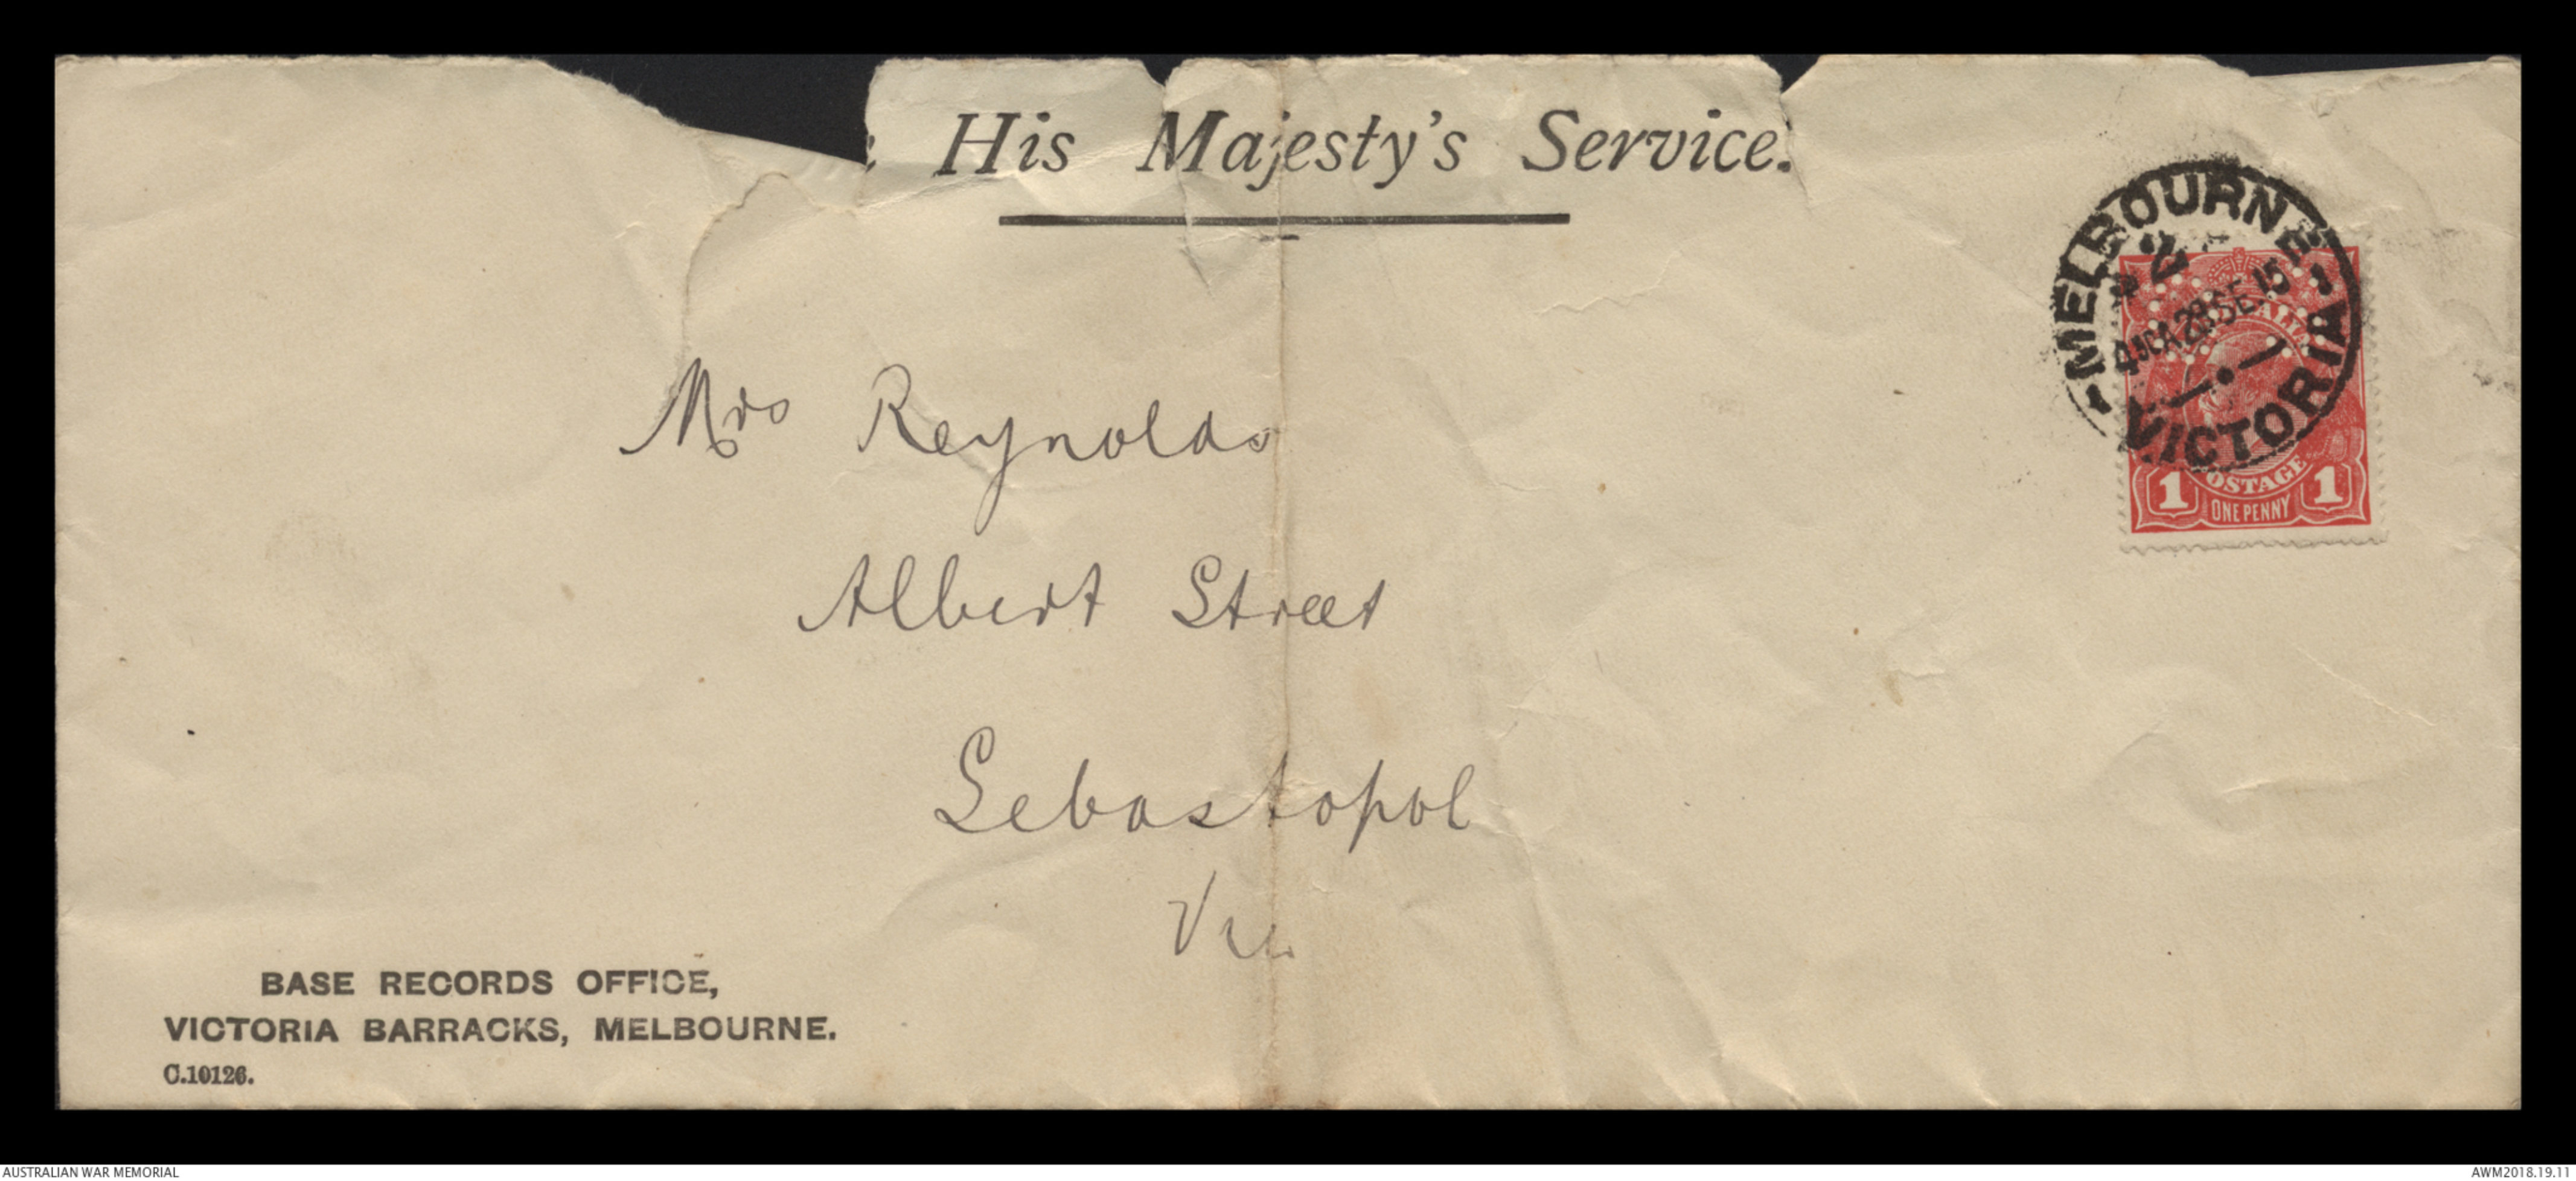 : His Majesty's Service.
MELBOURNE
2
28 SE 15
VICTORIA
POSTAGE
1 ONE PENNY 1
Mrs Reynolds
Albert Street
Sebastopol
Vic.
BASE RECORDS OFFICE,
VICTORIA BARRACKS, MELBOURNE.
C.10126.
AUSTRALIAN WAR MEMORIAL
AWM2018.19.11